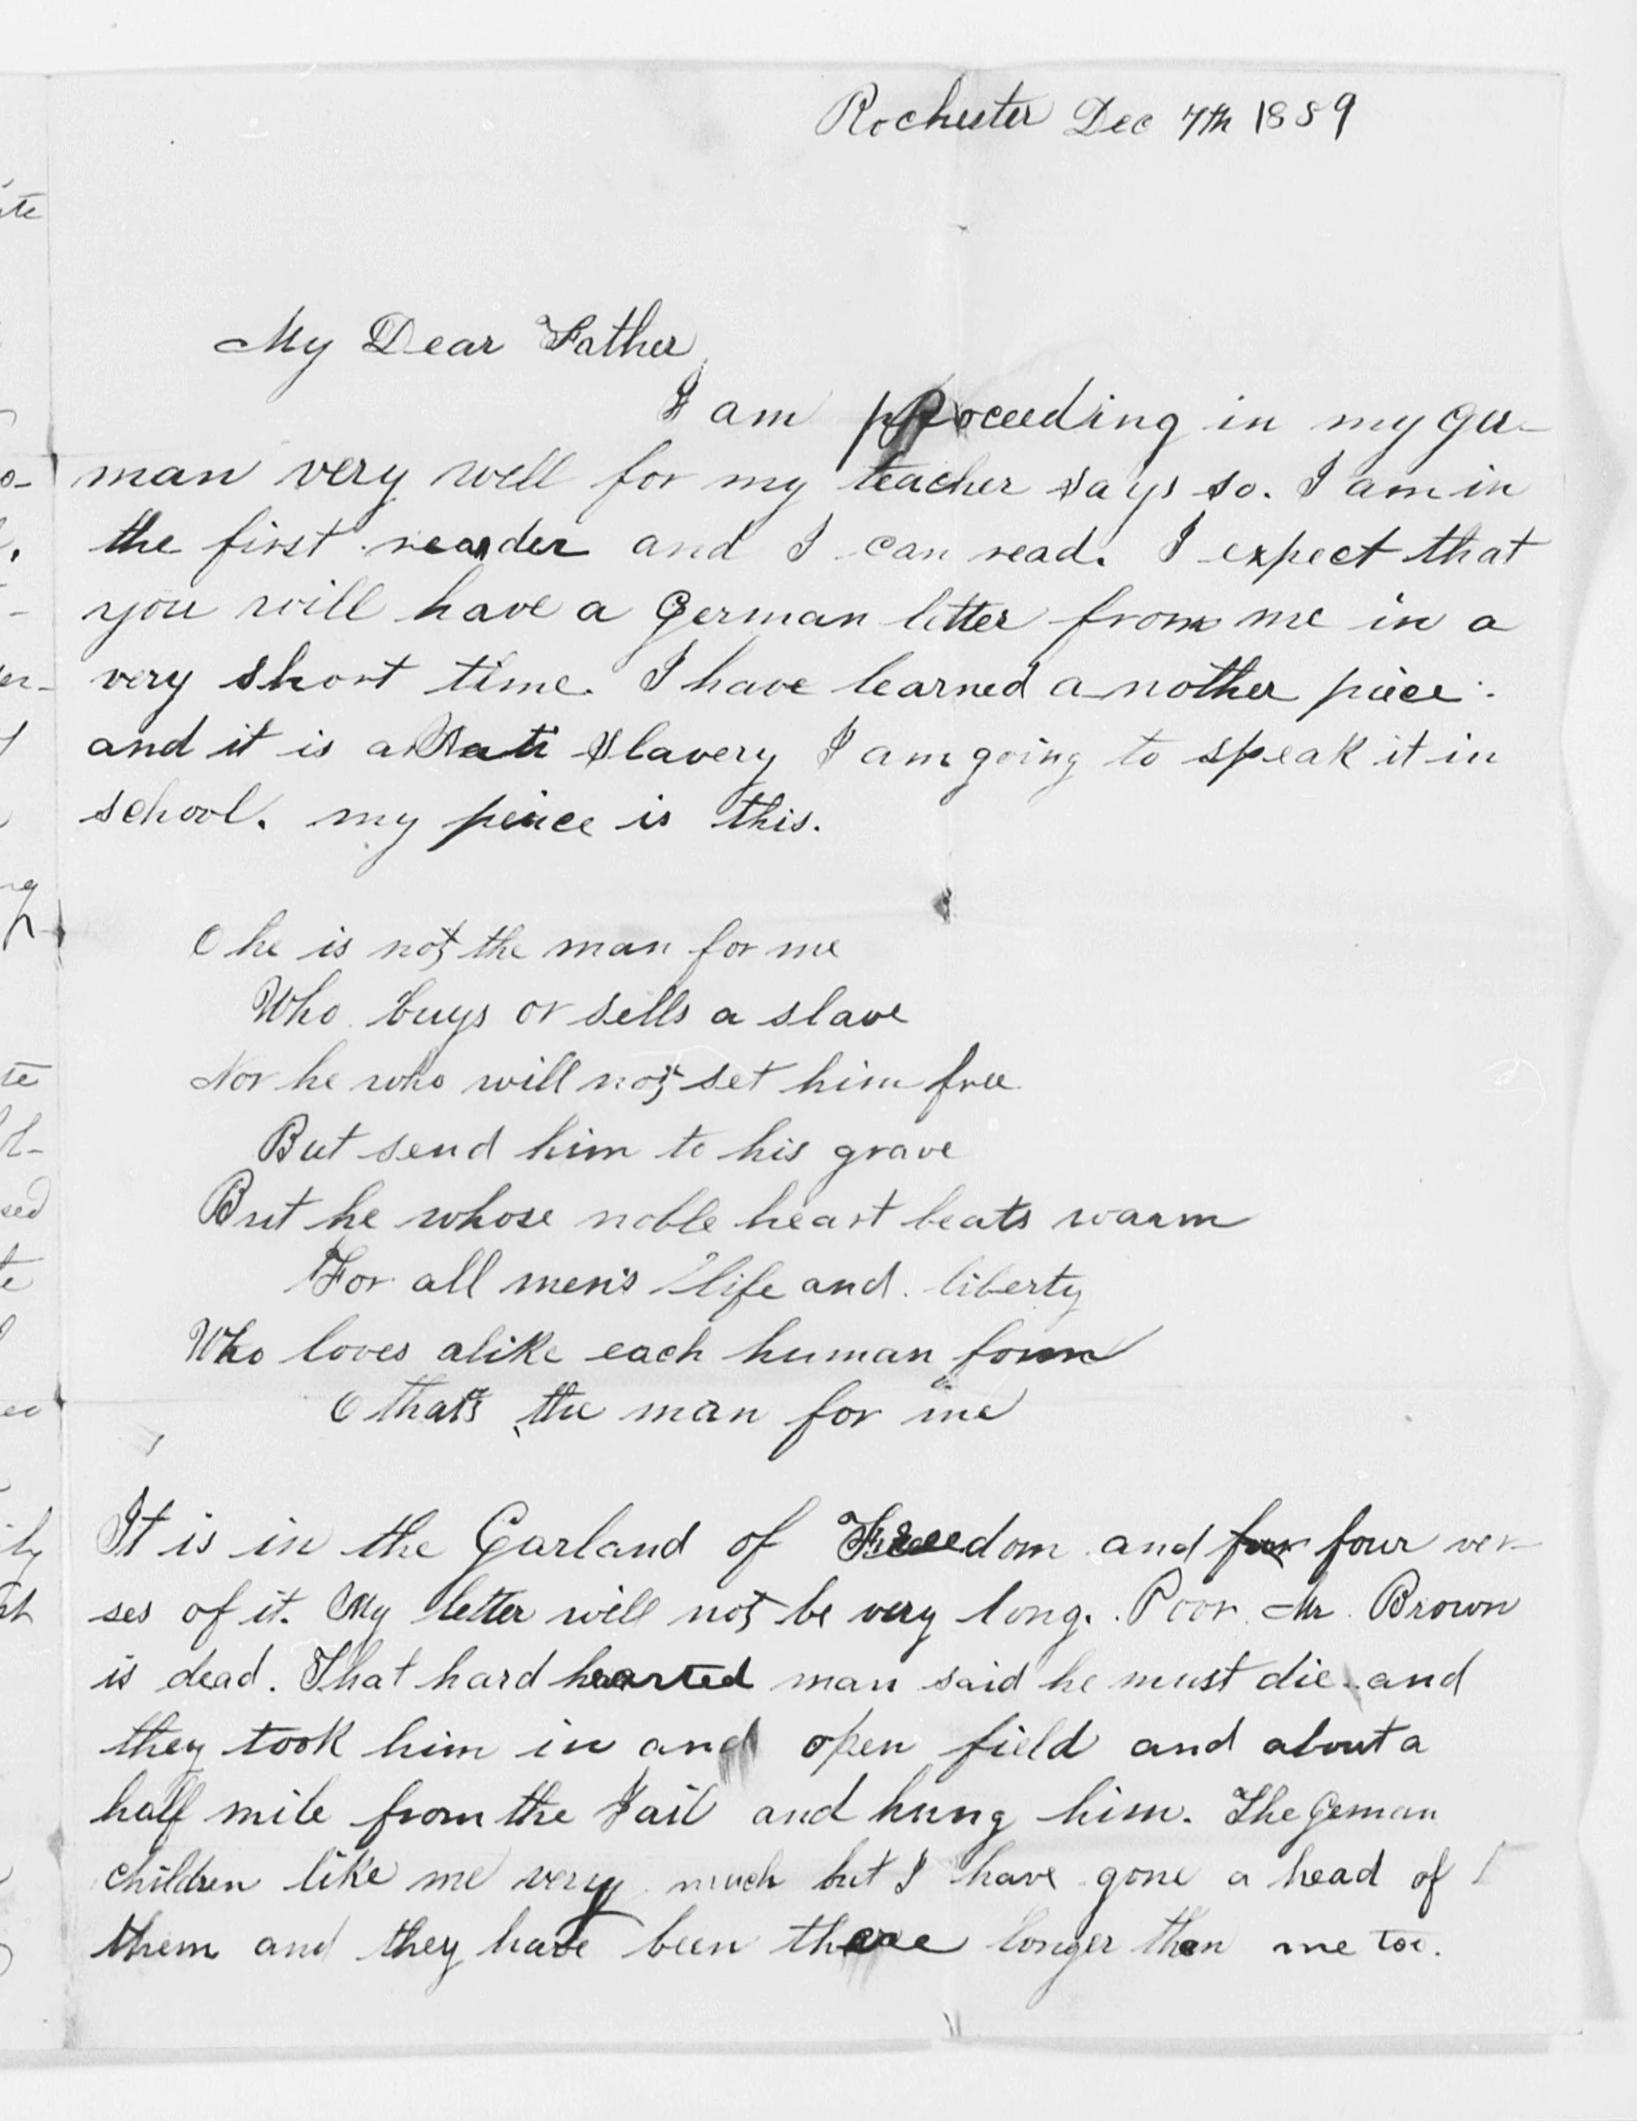 Rochester Dec 7th 1859
My Dear Father
I am proceeding in my ger-
man very well for my teacher says so. I am in
the first reader and I can read. I expect that
you will have a German letter from me in a
very short time. I have learned another piece.
and it is anti slavery I am going to speak it in
school. my peice is this.
O he is not the man for me
Who buys or sells a slave
Nor he who will not set him free
But send him to his grave
But he whose noble heart beats warm
For all men's life and liberty
Who loves alike each human form
O that's the man for me
It is in the Garland of Freedom and four four ver-
ses of it. My letter will not be very long. Poor Mr. Brown
is dead. That hard hearted man said he must die and
they took him in and open field and about a
half mile from the Jail and hung him. The Geman
children like me very much but I have gone a head of
them and they have been there longer than me too.